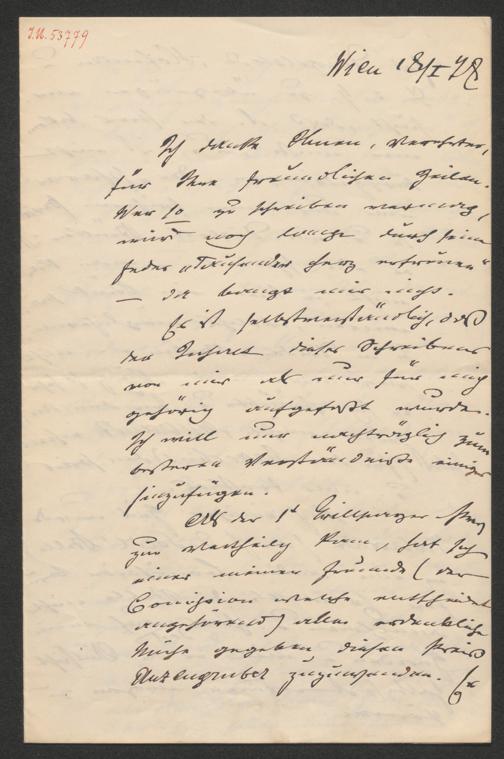 I.N. 53779
Wien 18/I 78
Ich danke Ihnen, Verehrter,
für Ihre freundlichen Zeilen.
Wer so zu schreiben vermag,
wird noch lange durch seine
Feder „Tausender Herz erfreuen"
— da bangt mir nicht.
Es ist selbstverständlich, daß
der Inhalt dieses Schreibens
von mir als nur für mich
gehörig aufgefaßt wurde.
Ich will nur nachträglich zum
besseren Verständniße einiges
hinzufügen.
Als der Grillparzer Preis
zur Vertheilg kam, hat sich
einer meiner Freunde (der
Comission welche entscheidet
angehörend) alle erdenkliche
Mühe gegeben, diesen Preis
Anzengruber zuzuwenden. Er